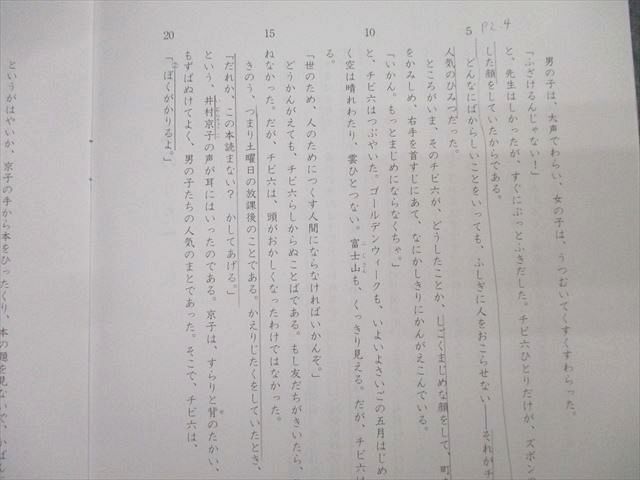 P2.4
男の子は、大声でわらい、女の子は、うつむいてくすくすわらった。
「ふざけるんじゃない！」
と、先生はしかったが、すぐにぷっとふきだした。チビ六ひとりだけが、ズボン
した顔をしていたからである。
5
どんなにばからしいことをいっても、ふしぎに人をおこらせない――それがチ
人気のひみつだった。
ところがいま、そのチビ六が、どうしたことか、しごくまじめな顔をして、町
をかみしめ、右手を首すじにあて、なにかしきりにかんがえこんでいる。
「いかん。もっとまじめにならなくちゃ。」
10
と、チビ六はつぶやいた。ゴールデンウィークも、いよいよさいごの五月はじめ
く空は晴れわたり、雲ひとつない。富士山も、くっきり見える。だが、チビ六は
る。
「世のため、人のためにつくす人間にならなければいかんぞ。」
どうかんがえても、チビ六らしからぬことばである。もし友だちがきいたら、
15
ねなかった。だが、チビ六は、頭がおかしくなったわけではなかった。
きのう、つまり土曜日の放課後のことである。かえりじたくをしていたとき、
「だれか、この本読まない？　かしてあげる。」
という、井村京子の声が耳にはいったのである。京子は、すらりと背のたかい、
もずばぬけてよく、男の子たちの人気のまとであった。そこで、チビ六は、
20
「ぼくがかりるよ。」
というがはやいか、京子の手から本をひったくり、本の題を見ないで、かばんに